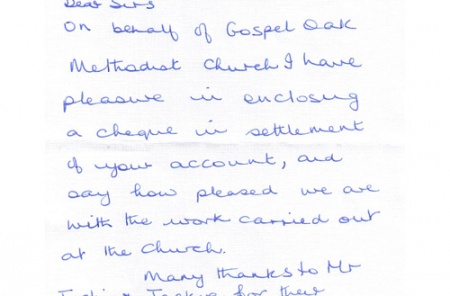 Dear Sirs
On behalf of Gospel Oak
Methodist Church I have
pleasure in enclosing
a cheque in settlement
of your account, and
say how pleased we are
with the work carried out
at the Church.
Many thanks to Mr
for their